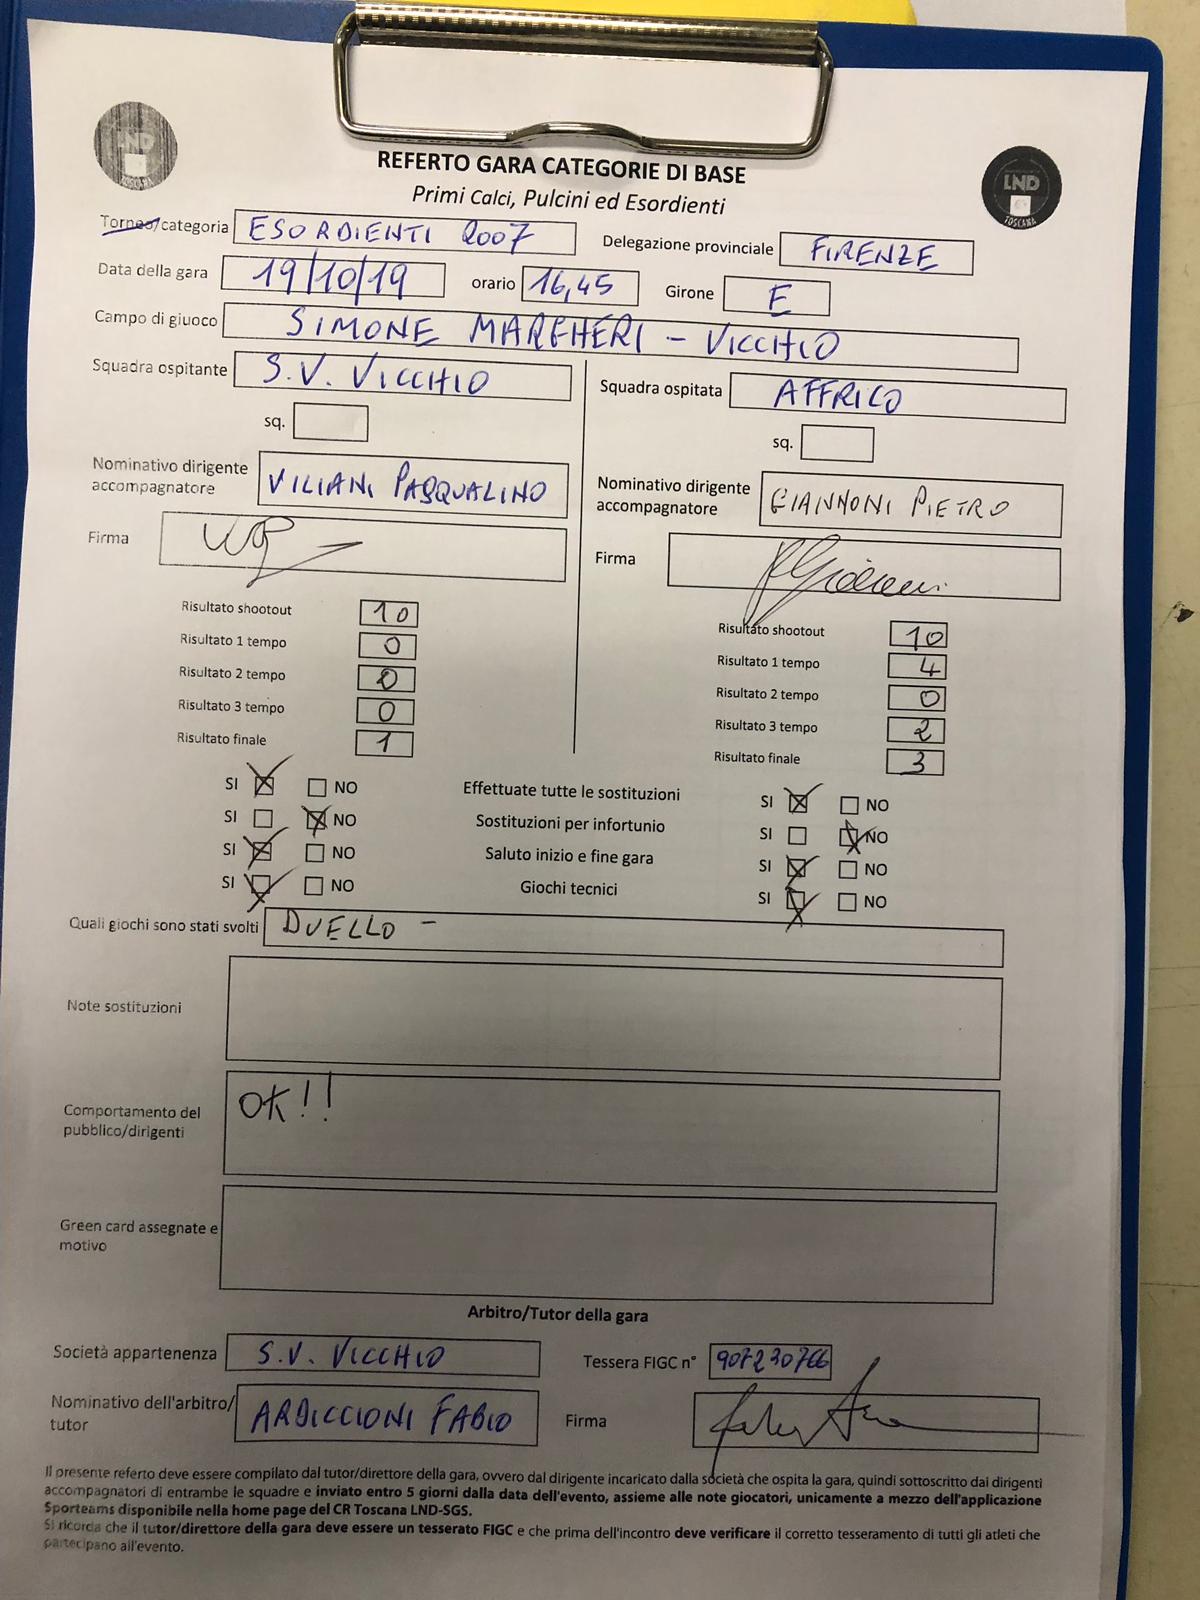 LND
TOSCANA
LND
TOSCANA
REFERTO GARA CATEGORIE DI BASE
Primi Calci, Pulcini ed Esordienti
Torneo/categoria ESORDIENTI 2007 Delegazione provinciale FIRENZE
Data della gara 19/10/19 orario 16,45 Girone E
Campo di giuoco SIMONE MARGHERI - VICCHIO
Squadra ospitante S.V. VICCHIO Squadra ospitata AFFRICO
sq. sq.
Nominativo dirigente accompagnatore VILIANI PASQUALINO Nominativo dirigente accompagnatore GIANNONI PIETRO
Firma Firma
Risultato shootout 10 Risultato shootout 10
Risultato 1 tempo 0 Risultato 1 tempo 4
Risultato 2 tempo 0 Risultato 2 tempo 0
Risultato 3 tempo 0 Risultato 3 tempo 2
Risultato finale 1 Risultato finale 3
SI NO Effettuate tutte le sostituzioni SI NO
SI NO Sostituzioni per infortunio SI NO
SI NO Saluto inizio e fine gara SI NO
SI NO Giochi tecnici SI NO
Quali giochi sono stati svolti DUELLO -
Note sostituzioni
Comportamento del pubblico/dirigenti OK!!
Green card assegnate e motivo
Arbitro/Tutor della gara
Società appartenenza S.V. VICCHIO Tessera FIGC n° 907230766
Nominativo dell'arbitro/tutor ARDICCIONI FABIO Firma
Il presente referto deve essere compilato dal tutor/direttore della gara, ovvero dal dirigente incaricato dalla società che ospita la gara, quindi sottoscritto dai dirigenti
accompagnatori di entrambe le squadre e inviato entro 5 giorni dalla data dell'evento, assieme alle note giocatori, unicamente a mezzo dell'applicazione
Sporteams disponibile nella home page del CR Toscana LND-SGS.
Si ricorda che il tutor/direttore della gara deve essere un tesserato FIGC e che prima dell'incontro deve verificare il corretto tesseramento di tutti gli atleti che
partecipano all'evento.